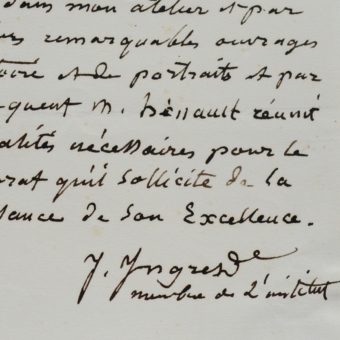 dans mon atelier et par
es remarquables ouvrages
toire et de portraits et par
quent M. hénault réunit
alités nécessaires pour le
rat qu'il sollicite de la
sance de son Excellence.
J. Ingres
membre de L'institut